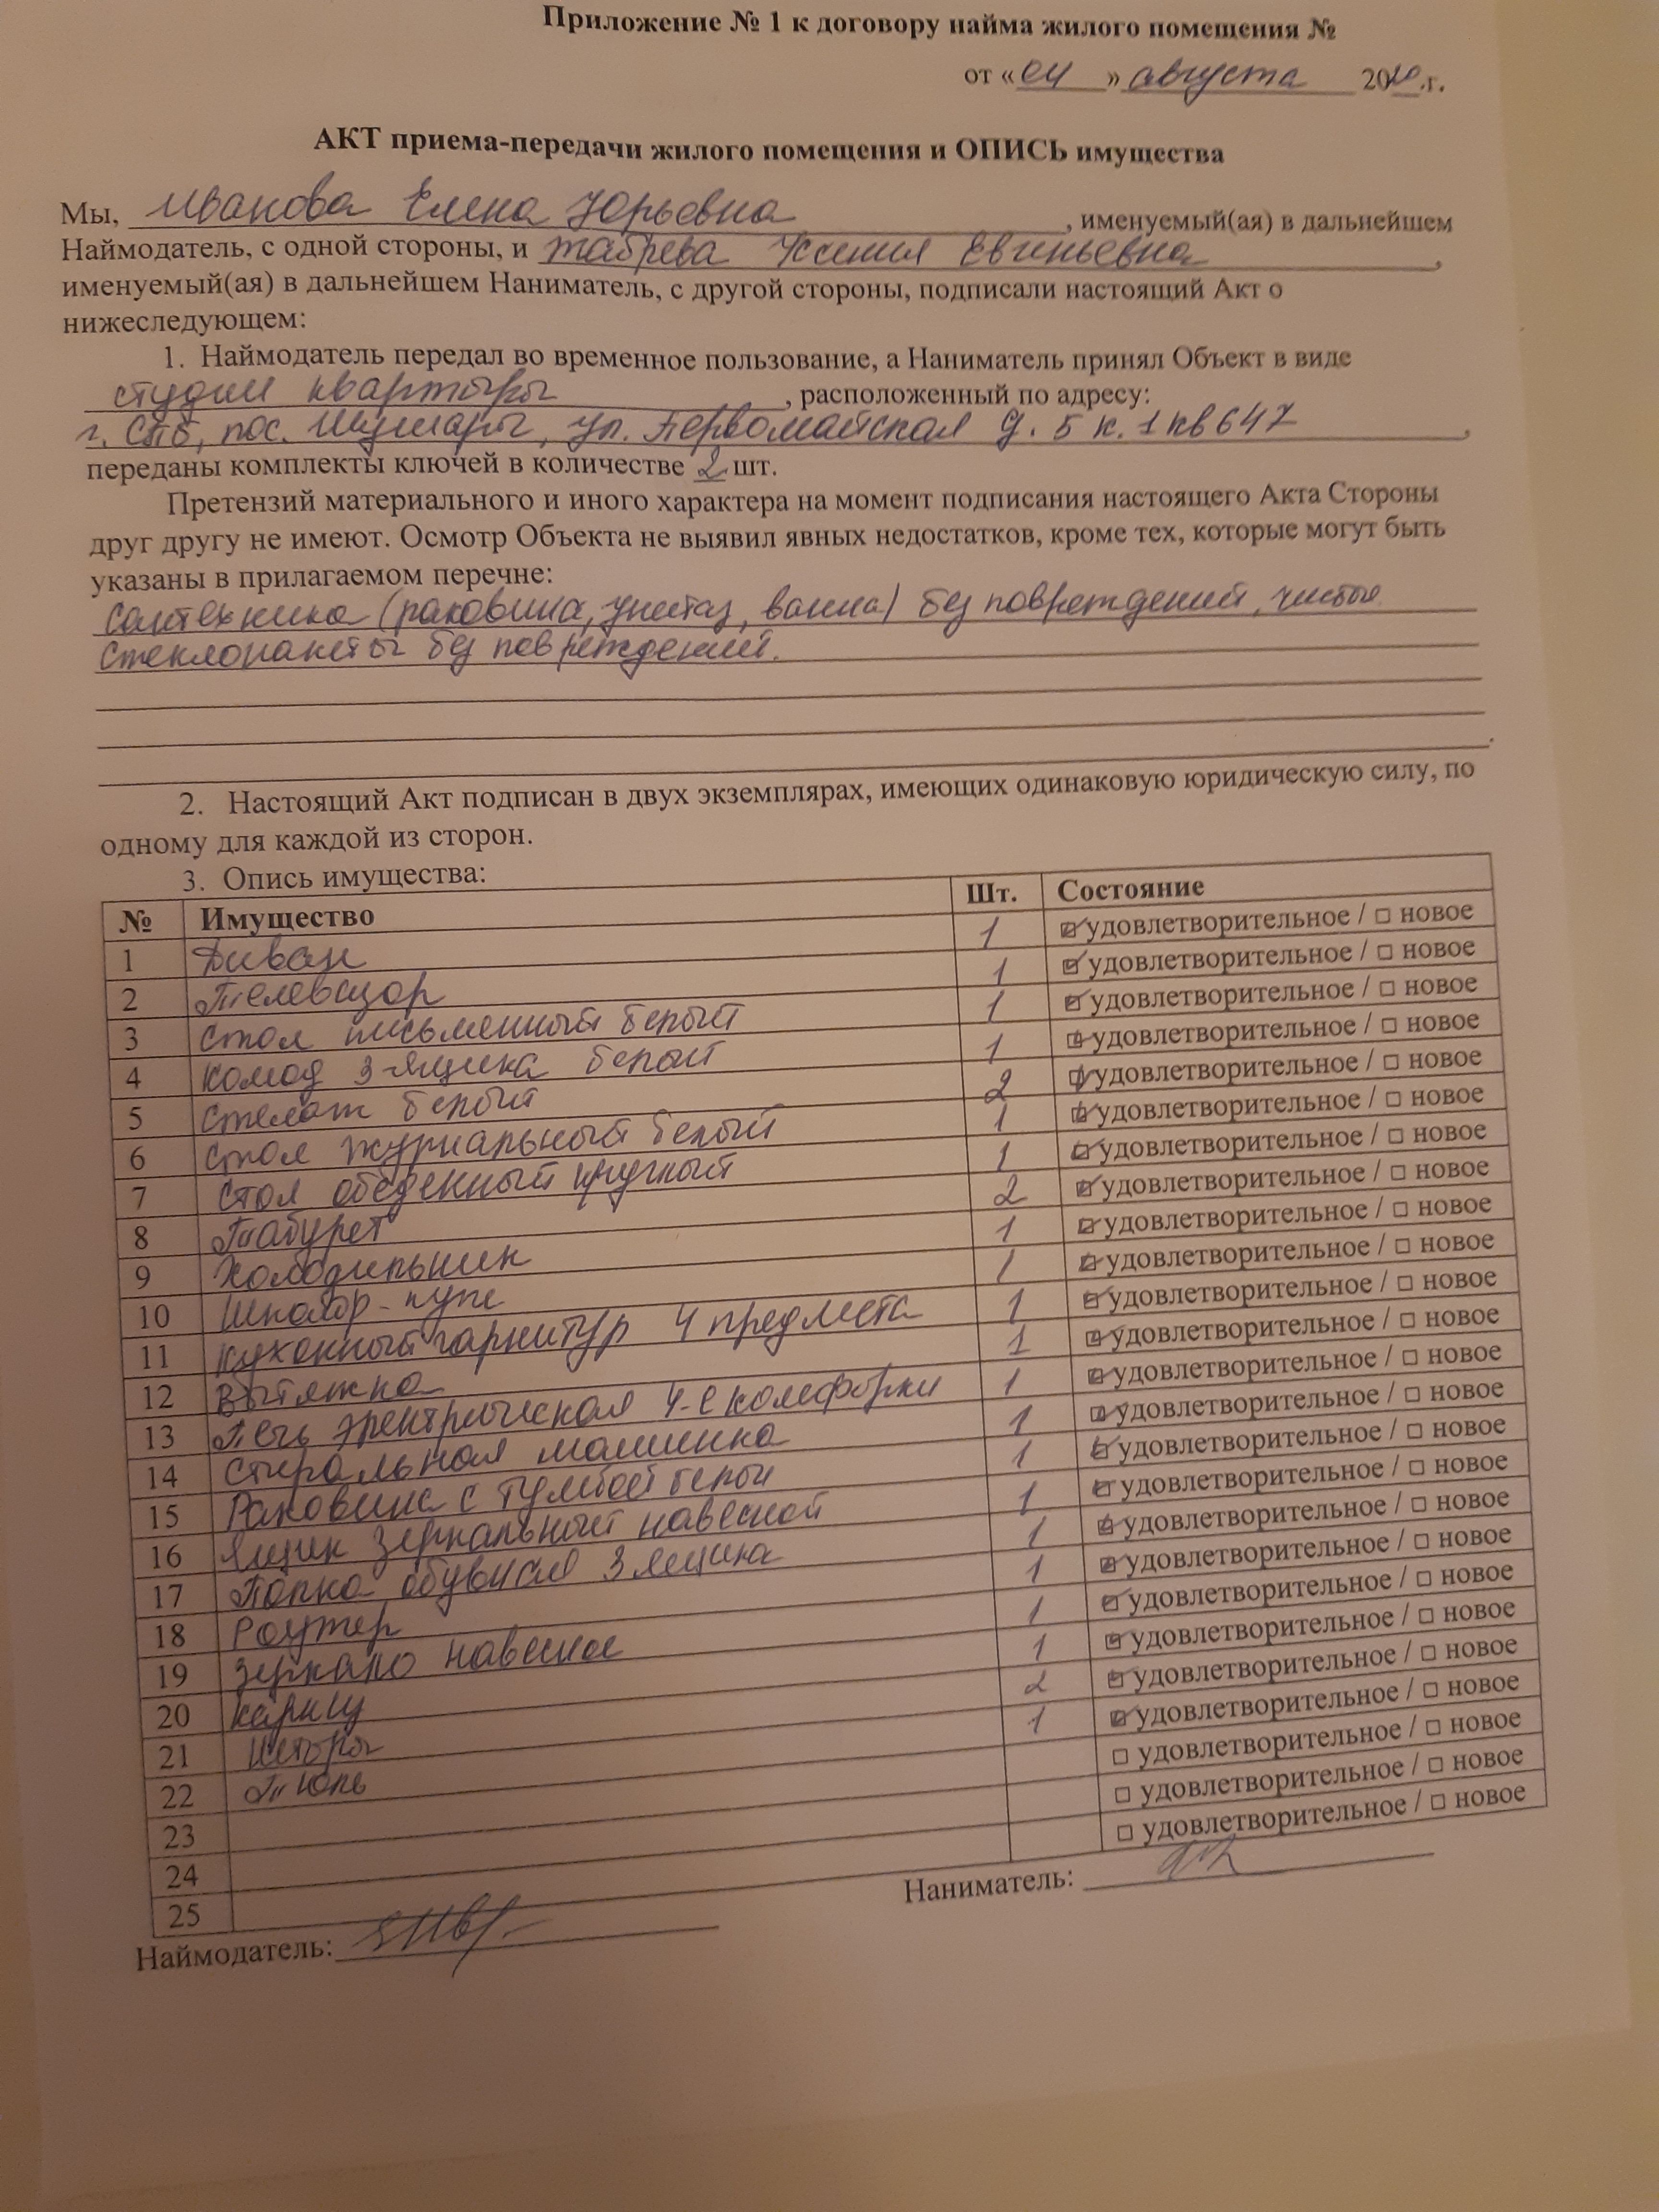 Приложение № 1 к договору найма жилого помещения №
от «04» августа 2020.г.
АКТ приема-передачи жилого помещения и ОПИСЬ имущества
Мы, Иванова Елена Юрьевна, именуемый(ая) в дальнейшем
Наймодатель, с одной стороны, и Жабрева Ксения Евгеньевна,
именуемый(ая) в дальнейшем Наниматель, с другой стороны, подписали настоящий Акт о
нижеследующем:
1. Наймодатель передал во временное пользование, а Наниматель принял Объект в виде
студии квартиры, расположенный по адресу:
г. СПб, пос. Шушары, ул. Первомайская д. 5 к. 1 кв 647,
переданы комплекты ключей в количестве 2 шт.
Претензий материального и иного характера на момент подписания настоящего Акта Стороны
друг другу не имеют. Осмотр Объекта не выявил явных недостатков, кроме тех, которые могут быть
указаны в прилагаемом перечне:
Сантехника (раковина, унитаз, ванна) без повреждений, чистые
Стеклопакеты без повреждений.
2. Настоящий Акт подписан в двух экземплярах, имеющих одинаковую юридическую силу, по
одному для каждой из сторон.
3. Опись имущества:
№ Имущество Шт. Состояние
1 Диван 1 ☑ удовлетворительное / □ новое
2 Телевизор 1 ☑ удовлетворительное / □ новое
3 Стол письменный белый 1 ☑ удовлетворительное / □ новое
4 Комод 3-ящика белый 1 ☑ удовлетворительное / □ новое
5 Стелаж белый 2 ☑ удовлетворительное / □ новое
6 Стол журнальный белый 1 ☑ удовлетворительное / □ новое
7 Стол обеденный круглый 1 ☑ удовлетворительное / □ новое
8 Табурет 2 ☑ удовлетворительное / □ новое
9 Холодильник 1 ☑ удовлетворительное / □ новое
10 Шкаф-купе 1 ☑ удовлетворительное / □ новое
11 Кухонный гарнитур 4 предмета 1 ☑ удовлетворительное / □ новое
12 Вытяжка 1 ☑ удовлетворительное / □ новое
13 Печь электрическая 4-е комфорки 1 ☑ удовлетворительное / □ новое
14 Стиральная машинка 1 ☑ удовлетворительное / □ новое
15 Раковина с тумбой белой 1 ☑ удовлетворительное / □ новое
16 Ящик зеркальный навесной 1 ☑ удовлетворительное / □ новое
17 Полка обувная 3 ящика 1 ☑ удовлетворительное / □ новое
18 Роутер 1 ☑ удовлетворительное / □ новое
19 Зеркало навесное 1 ☑ удовлетворительное / □ новое
20 Карниз 1 ☑ удовлетворительное / □ новое
21 Шторы 2 ☑ удовлетворительное / □ новое
22 Тюль 1 ☑ удовлетворительное / □ новое
23 □ удовлетворительное / □ новое
24 □ удовлетворительное / □ новое
25 □ удовлетворительное / □ новое
Наймодатель: Наниматель: